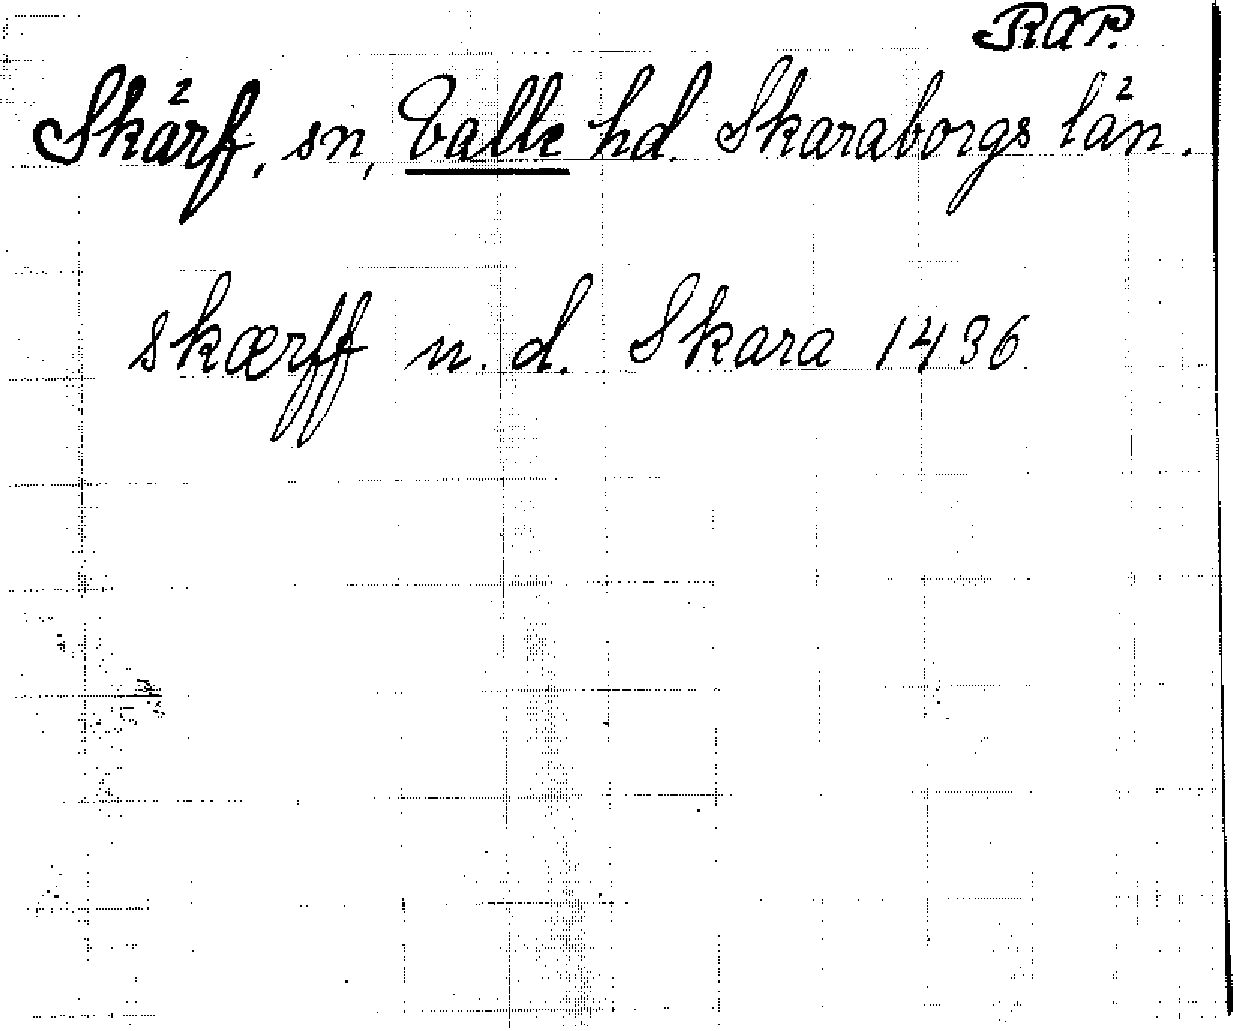 RAP.
Skärf, sn, Valle hd. Skaraborgs län.
skærff n. d. Skara 1436